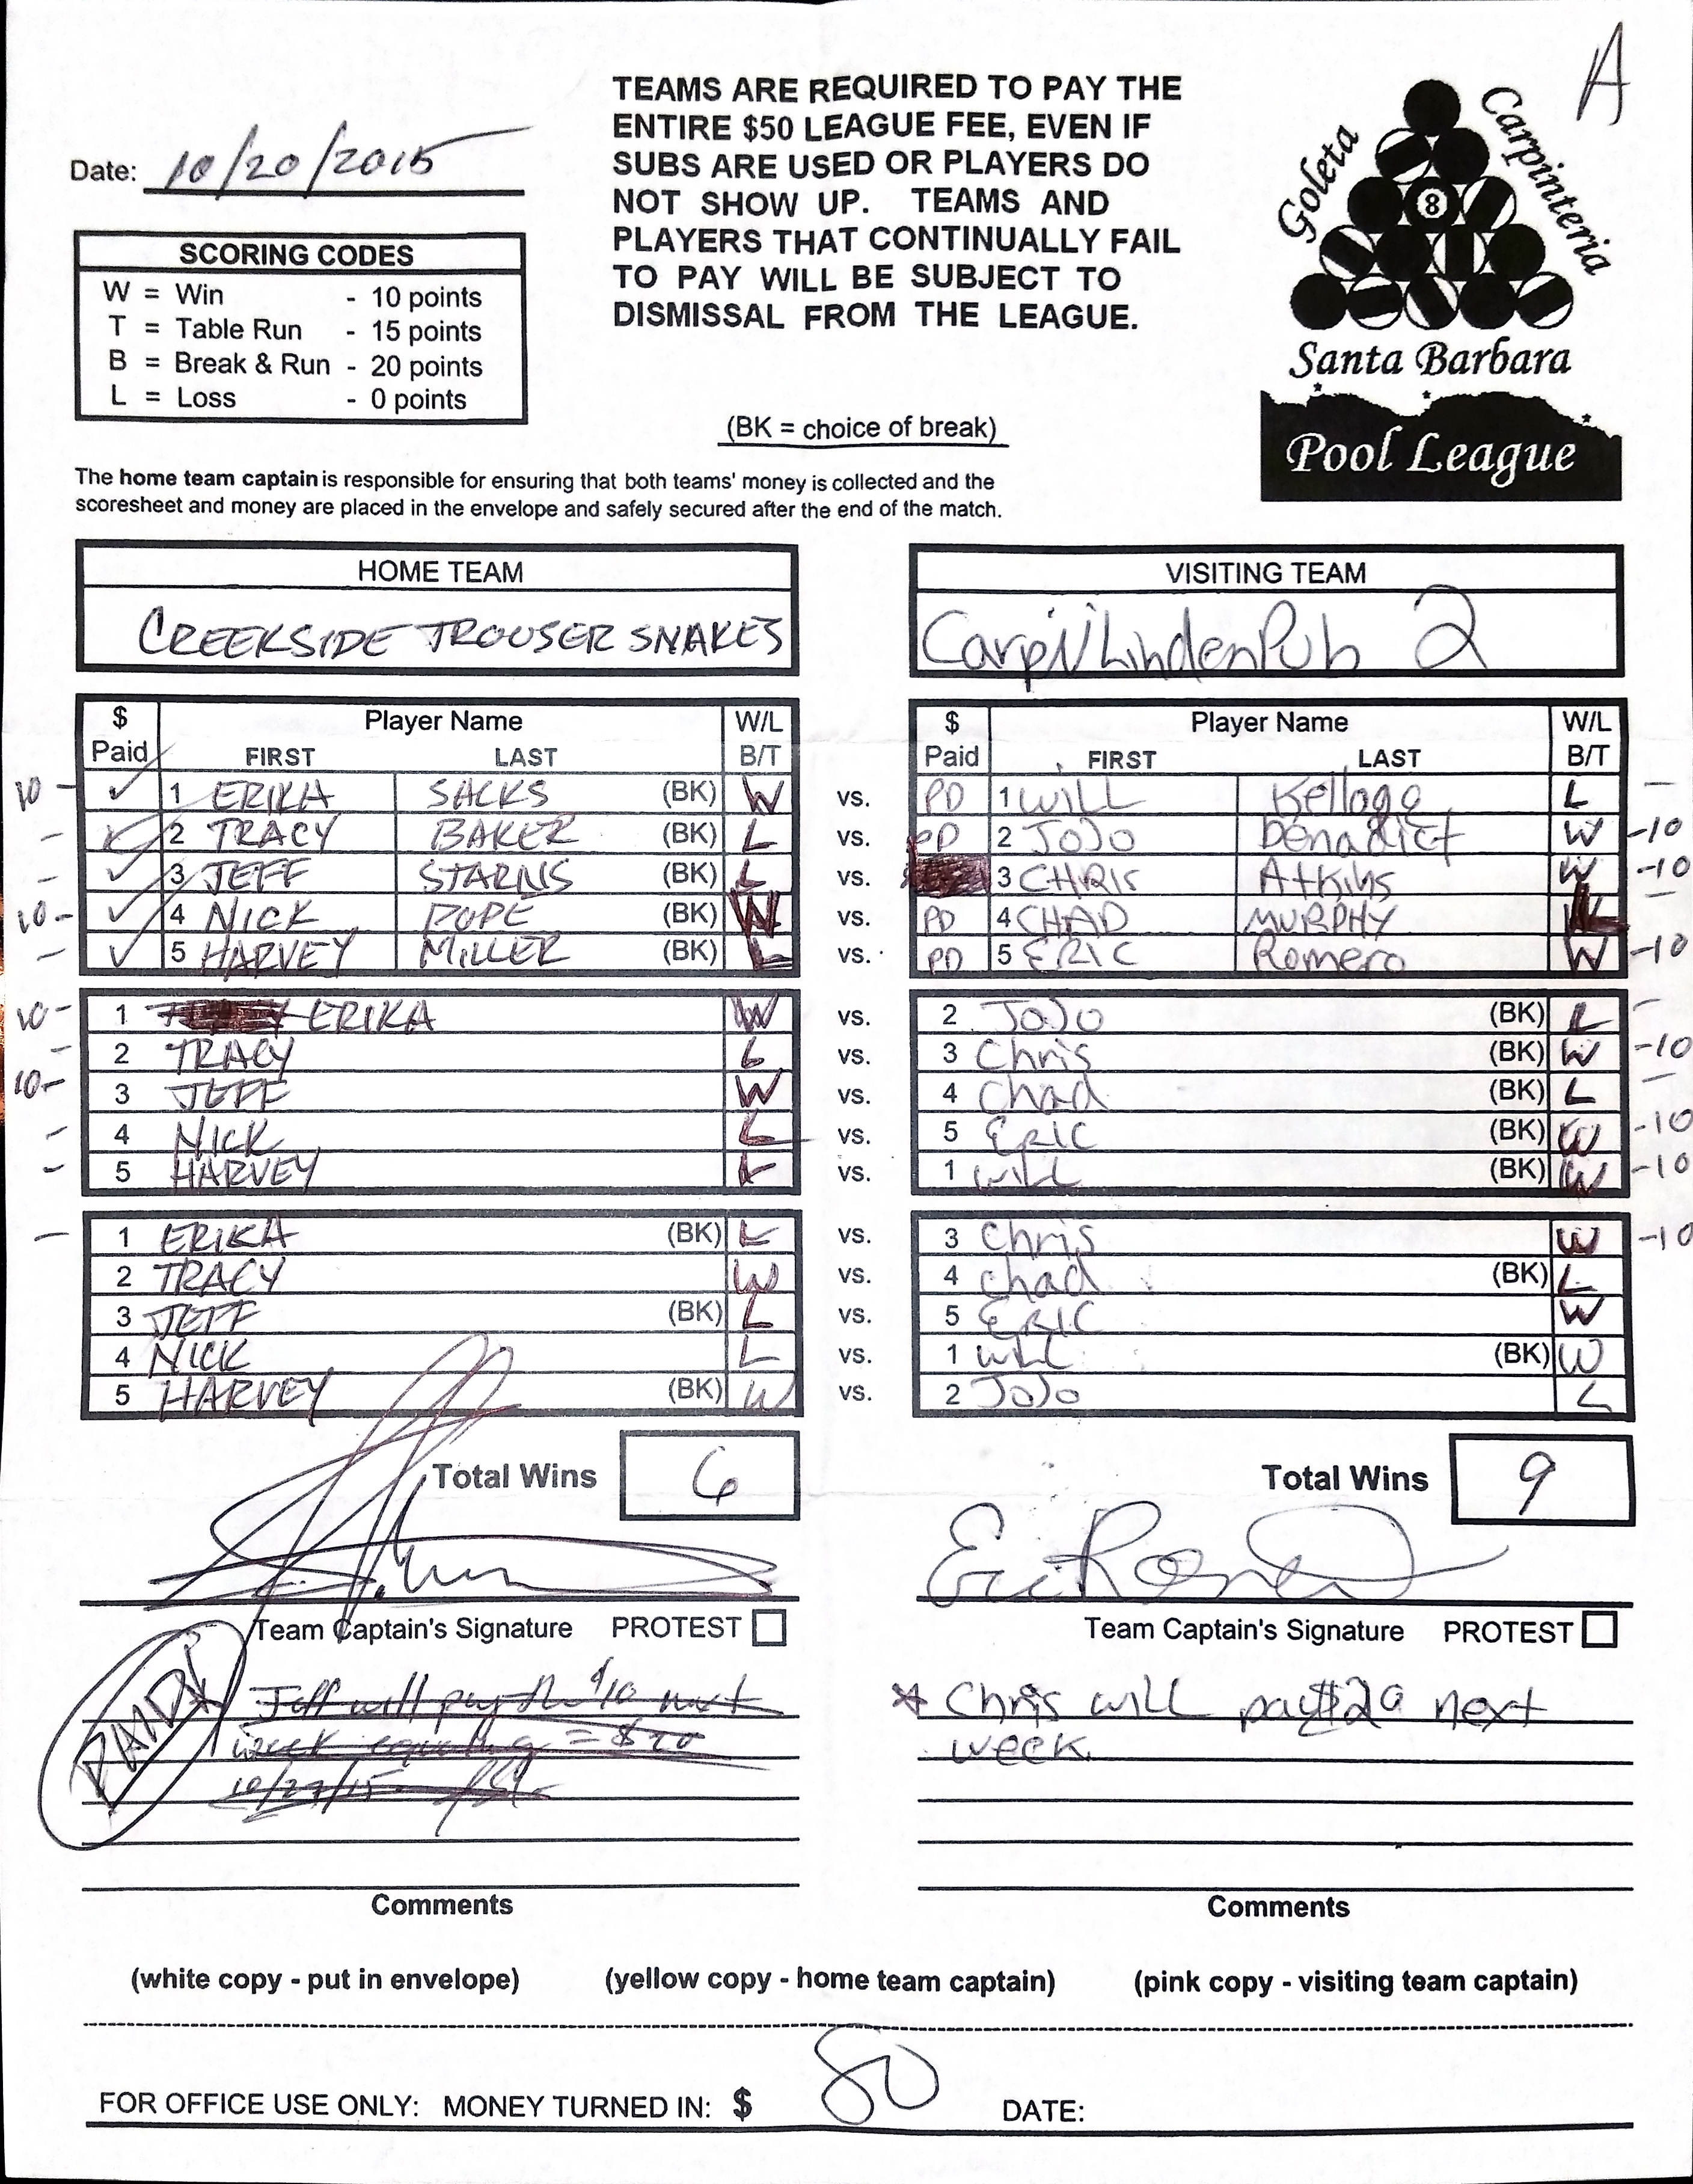 A
Date: 10/20/2015
SCORING CODES
W = Win - 10 points
T = Table Run - 15 points
B = Break & Run - 20 points
L = Loss - 0 points
TEAMS ARE REQUIRED TO PAY THE
ENTIRE $50 LEAGUE FEE, EVEN IF
SUBS ARE USED OR PLAYERS DO
NOT SHOW UP. TEAMS AND
PLAYERS THAT CONTINUALLY FAIL
TO PAY WILL BE SUBJECT TO
DISMISSAL FROM THE LEAGUE.
(BK = choice of break)
Goleta
Carpinteria
8
Santa Barbara
Pool League
The home team captain is responsible for ensuring that both teams' money is collected and the
scoresheet and money are placed in the envelope and safely secured after the end of the match.
HOME TEAM
CREEKSIDE TROUSER SNAKES
VISITING TEAM
Carpi/LindenPub 2
$ Player Name W/L $ Player Name W/L
Paid FIRST LAST B/T Paid FIRST LAST B/T
10 - ✓ 1 ERIKA SACKS (BK) W vs. PD 1 WILL Kellogg L -
- ✓ 2 TRACY BAKER (BK) L vs. PD 2 JOJO Benadict W -10
- ✓ 3 JEFF STARNS (BK) L vs. 3 CHRIS Atkins W -10
10 - ✓ 4 NICK POPE (BK) W vs. PD 4 CHAD MURPHY L -
- ✓ 5 HARVEY MILLER (BK) L vs. PD 5 ERIC Romero W -10
10 - 1 ERIKA W vs. 2 JoJo (BK) L -
- 2 TRACY L vs. 3 Chris (BK) W -10
10 - 3 JEFF W vs. 4 Chad (BK) L -
- 4 NICK L vs. 5 ERIC (BK) W -10
- 5 HARVEY L vs. 1 WILL (BK) W -10
- 1 ERIKA (BK) L vs. 3 Chris W -10
2 TRACY W vs. 4 Chad (BK) L
3 JEFF (BK) L vs. 5 ERIC W
4 NICK L vs. 1 WILL (BK) W
5 HARVEY (BK) W vs. 2 JoJo L
Total Wins 6 Total Wins 9
Team Captain's Signature PROTEST
Eric Romero
Team Captain's Signature PROTEST
Jeff will pay the $10 next
week equaling = $20
10/27/15
* Chris will pay $20 next
week
Comments Comments
(white copy - put in envelope) (yellow copy - home team captain) (pink copy - visiting team captain)
FOR OFFICE USE ONLY: MONEY TURNED IN: $ 80 DATE: